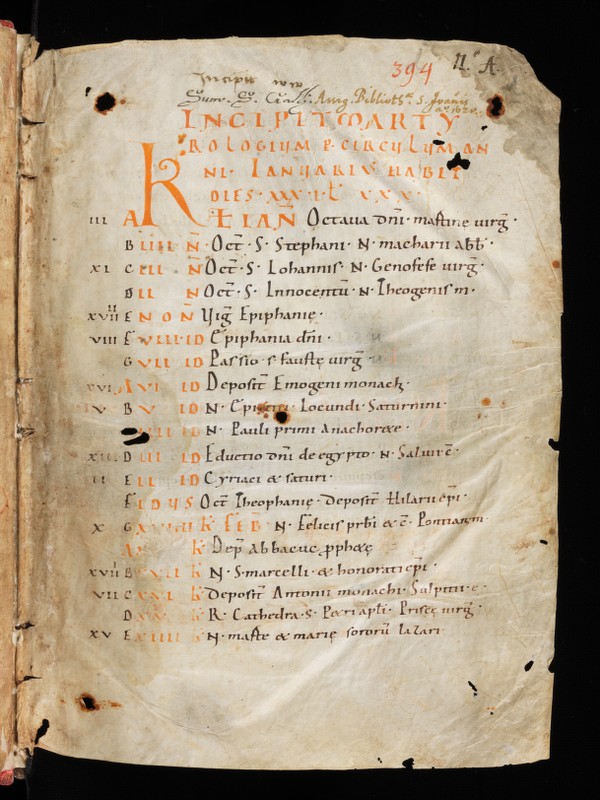 394 II. A
Incipit
INCIPIT MARTY
ROLOGIUM P CIRCULUM AN
NI. IANUARIUS HABET
DIES XXXI. L XXX.
III A K IAN Octaua dni. mastine uirg.
B IIII N Oct. S. Stephani. N. macharii abb.
XI C III N Oct. S. Iohannis. N. Genofefe uirg.
D II N Oct. S. Innocentu. N. Theogenis m.
E NON Uig Epiphanię.
VIII F VIII ID Epiphania dni.
G VII ID Passio. s. faustę uirg.
XVI A VI ID Deposit Emogeni monach.
V B V ID N. Locundi. Saturnini.
IIII ID N. Pauli primi anachoręte.
D III ID Eductio dni de egypto. N. Saluii ē.
II E II ID Cyriaci & saturi.
F IDUS Oct Theophanię. Deposit Hilarii epi.
X G K FEB. N. Felicis prbi & c̄. Pontiani m
A K Dep Abbacuc pphetę
XVII B XVII K N. S. marcelli. & honorati epi.
VII C XVI K Deposit Antonii monachi. Sulpitii. e.
D XV K R. Cathedra. S. Petri apli. Priscę uirg.
XV E XIIII K N. maste & marię sororū lazari